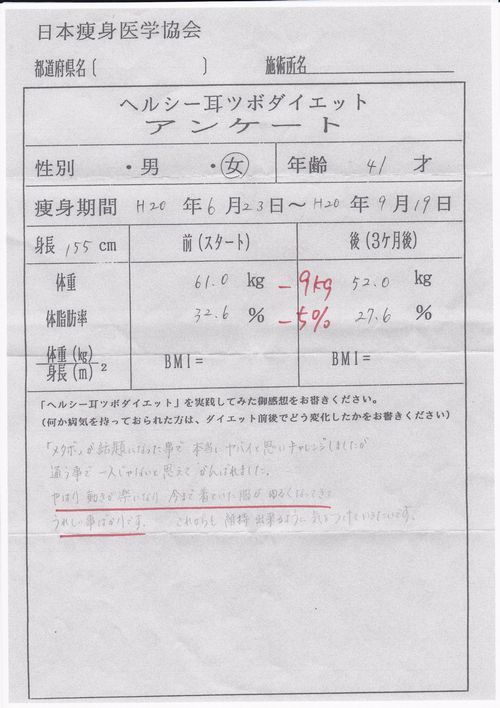 日本痩身医学協会
都道府県名〔 〕 施術所名
ヘルシー耳ツボダイエット
アンケート
性別 ・男 ・女 年齢 41 才
痩身期間 H20 年 6 月 23 日〜 H20 年 9 月 19 日
身長 155 cm 前(スタート) 後(3ケ月後)
体重 61.0 kg -9kg 52.0 kg
体脂肪率 32.6 % -5% 27.6 %
体重(kg)
身長(m) 2 BMI= BMI=
「ヘルシー耳ツボダイエット」を実践してみた御感想をお書きください。
(何か病気を持っておられた方は、ダイエット前後でどう変化したかをお書きください)
「メタボ」が話題になった事で 本当にヤバイと思いチャレンジしましたが
通う事で 一人じゃないと思えて がんばれました。
やはり 動きが楽になり 今まで着ていた服が ゆるくなってきて
うれしい事ばかりです。 これからも 維持 出来るように 気をつけていきたいです。